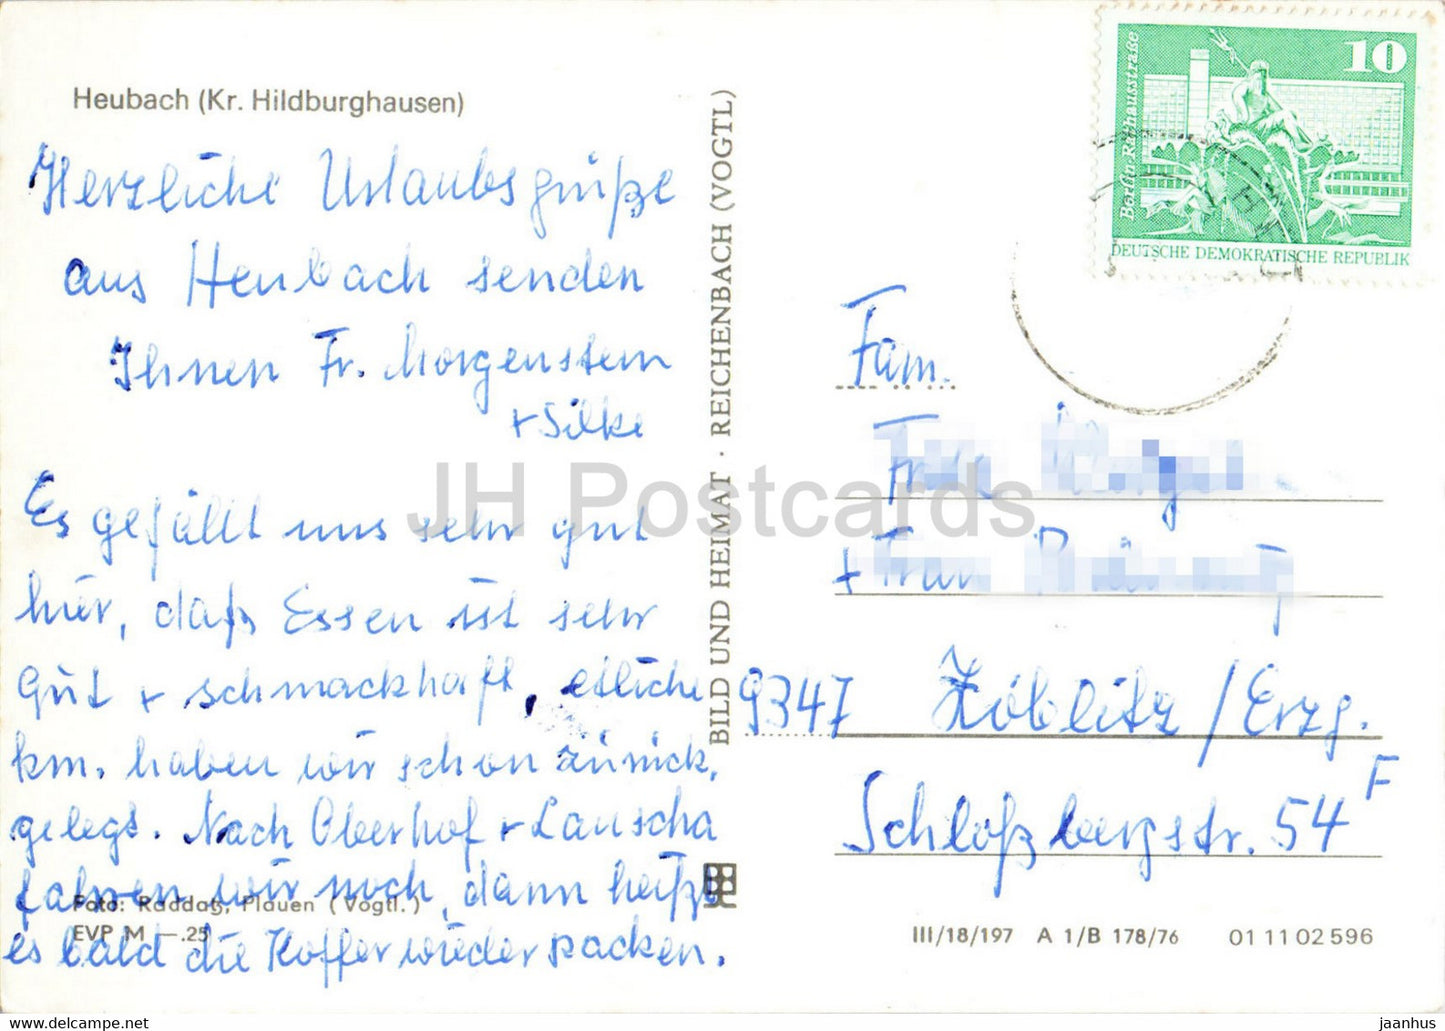 Heubach (Kr. Hildburghausen)
Herzliche Urlaubsgrüße
aus Heubach senden
Ihnen Fr. Morgenstern
+ Silke
Es gefällt uns sehr gut
hier, daß Essen ist sehr
Gut + schmackhaft, etliche
km. haben wir schon zurück,
gelegt. Nach Oberhof + Lauscha
fahren wir noch, dann heißt
es bald die Koffer wieder packen.
Foto: Raddatz, Plauen (Vogtl.)
EVP M —.25
BILD UND HEIMAT · REICHENBACH (VOGTL)
10
Berlin-Rathausstraße
DEUTSCHE DEMOKRATISCHE REPUBLIK
Fam.
+ Frau
9347 Zöblitz / Erzg.
Schloßbergstr. 54 F
III/18/197 A 1/B 178/76 01 11 02 596
JH Postcards
https://www.jh-postcards.com
jaanhus